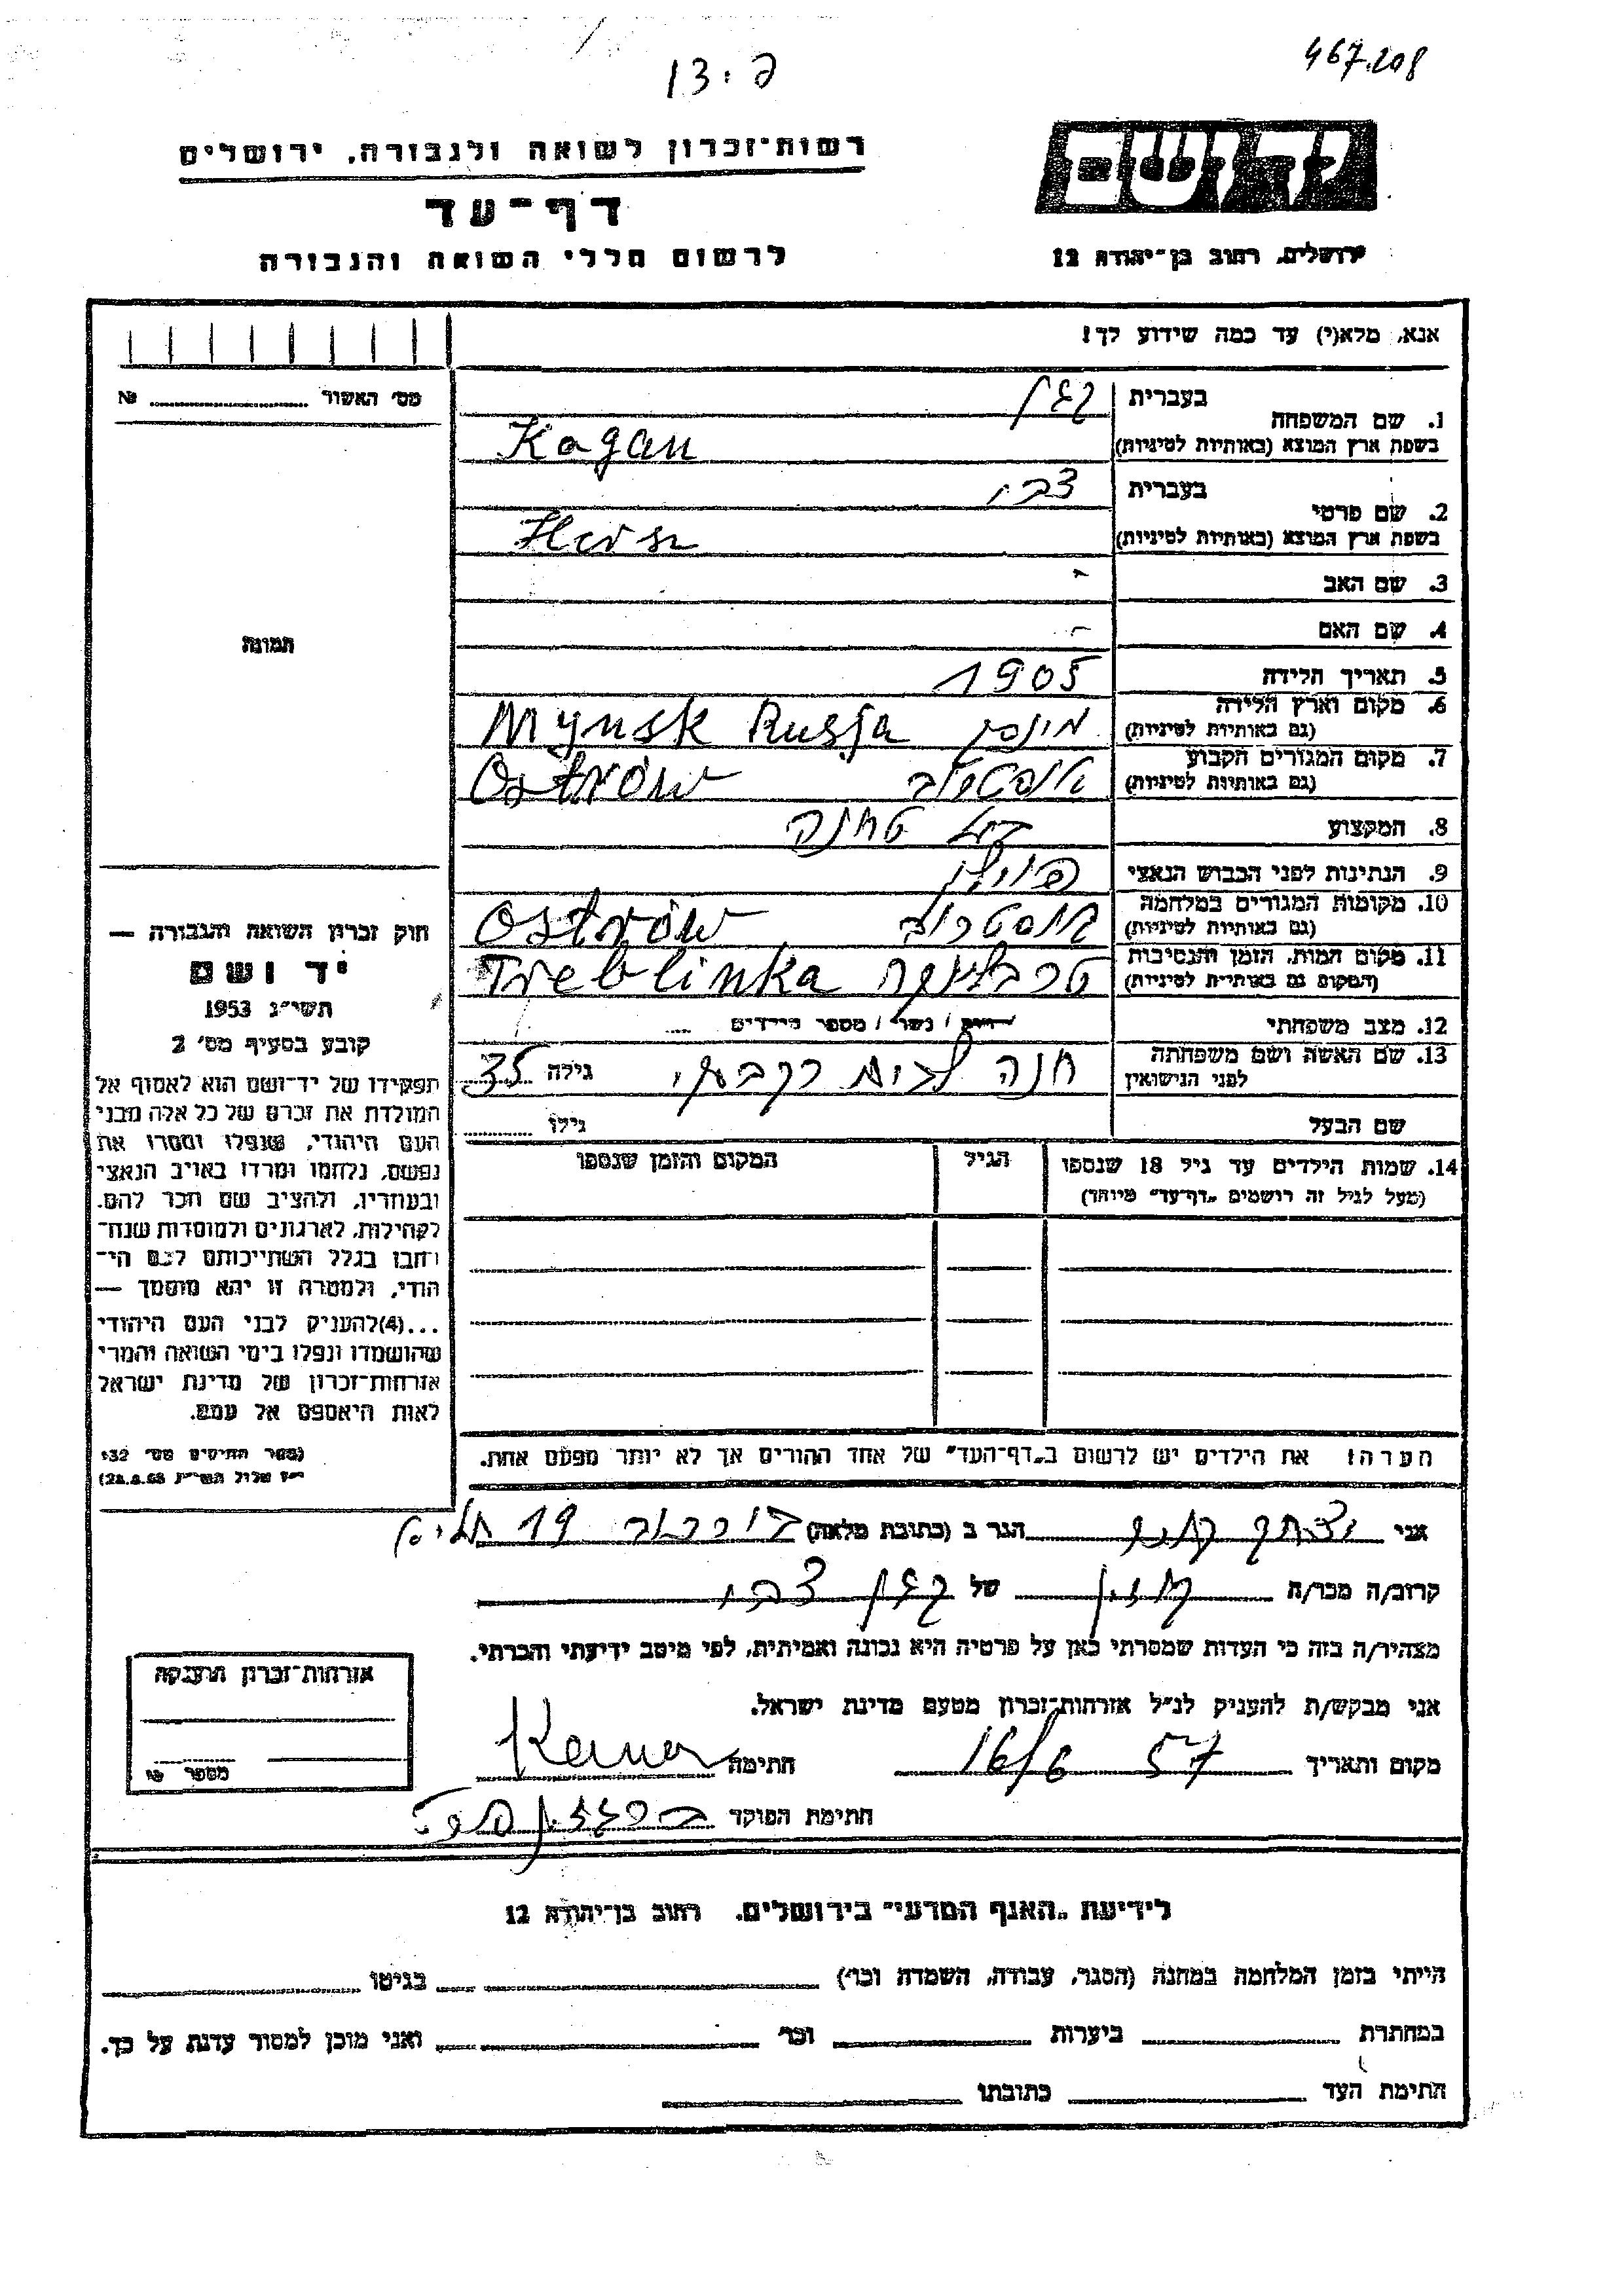 467.208
13 : ק
רשות־זכרון לשואה ולגבורה, ירושלים
יד ושם
דף־עד
לרשום חללי השואה והגבורה
ירושלים, רחוב בן־יהודה 12
אנא, מלא(י) עד כמה שידוע לך!
מס׳ האשור № 
1. שם המשפחה
בעברית קגן
בשפת ארץ המוצא (באותיות לטיניות) Kagan
2. שם פרטי
בעברית צבי
בשפת ארץ המוצא (באותיות לטיניות) Hersz
3. שם האב -
4. שם האם -
תמונה
5. תאריך הלידה 1905
6. מקום וארץ הלידה (גם באותיות לטיניות) מינסק Mynsk Rusja
7. מקום המגורים הקבוע (גם באותיות לטיניות) אוסטרוב Ostrów
8. המקצוע בעל טחנה
9. הנתינות לפני הכבוש הנאצי פולין
10. מקומות המגורים במלחמה (גם באותיות לטיניות) אוסטרוב Ostrów
11. מקום המות, הזמן והנסיבות (המקום גם באותיות לטיניות) טרבלינקה Treblinka
12. מצב משפחתי רווק / נשוי / מספר הילדים
13. שם האשה ושם משפחתה לפני הנישואין חנה לבית גילה 35
שם הבעל גילו
14. שמות הילדים עד גיל 18 שנספו (מעל לגיל זה רושמים „דף־עד” מיוחד) הגיל המקום והזמן שנספו
חוק זכרון השואה והגבורה —
יד ושם
תשי״ג 1953
קובע בסעיף מס׳ 2
תפקידו של יד־ושם הוא לאסוף אל
המולדת את זכרם של כל אלה מבני
העם היהודי, שנפלו ומסרו את
נפשם, נלחמו ומרדו באויב הנאצי
ובעוזריו, ולהציב שם וזכר להם,
לקהילות, לארגונים ולמוסדות שנח־
רבו בגלל השתייכותם לעם הי־
הודי, ולמטרה זו יהא מוסמך —
...(4)להעניק לבני העם היהודי
שהושמדו ונפלו בימי השואה והמרי
אזרחות־זכרון של מדינת ישראל
לאות היאספם אל עמם.
(ספר החוקים מס׳ 132
י״ז אלול תשי״ג 28.8.53)
הערה! את הילדים יש לרשום ב„דף־העד” של אחד ההורים אך לא יותר מפעם אחת.
אני יצחק הגר ב (כתובת מלאה) 19
קרוב/ה מכר/ה של קגן צבי
מצהיר/ה בזה כי העדות שמסרתי כאן על פרטיה היא נכונה ואמיתית, לפי מיטב ידיעתי והכרתי.
אני מבקש/ת להעניק לנ״ל אזרחות־זכרון מטעם מדינת ישראל.
מקום ותאריך 16/6 57 חתימה
חתימת הפוקד
אזרחות־זכרון הוענקה
מספר
לידיעת „האגף המדעי” בירושלים. רחוב בן־יהודה 12
הייתי בזמן המלחמה במחנה (הסגר, עבודה, השמדה וכו׳) בגיטו
במחתרת ביערות וכו׳ ואני מוכן למסור עדות על כך.
חתימת העד כתובתו